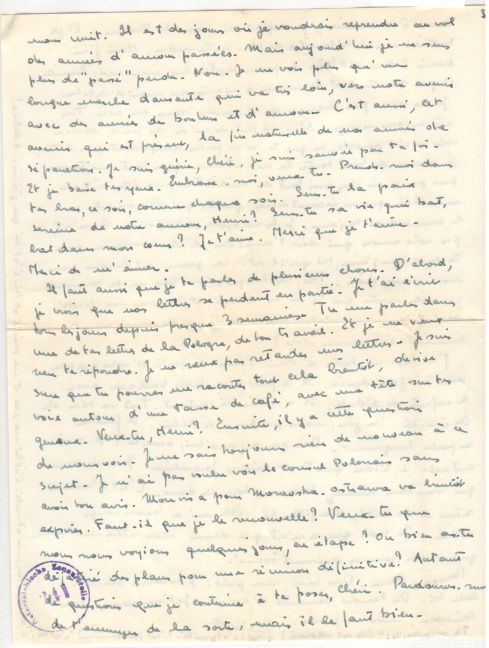 3
nous unit. Il est des jours où je voudrais reprendre au vol
des années d'amour passées. Mais aujourd'hui je ne sens
plus de "passé" perdu. Non. Je ne vois plus qu'une
longue marche dansante qui va très loin, vers notre avenir
avec des années de bonheur et d'amour. C'est aussi, cet
avenir qui est présent, la fin naturelle de nos années de
séparation. Je suis guérie, Chéri, je suis sauvée par ta foi.
Et je baise tes yeux. Embrasse-moi, veux-tu. Prends-moi dans
tes bras, ce soir, comme chaque soir. Sens-tu la paix
sereine de notre amour, Henri? Sens-tu sa vie qui bat,
bat dans mon cœur? Je t'aime. Merci que je t'aime.
Merci de m'aimer.
Il faut aussi que je te parle de plusieurs choses. D'abord,
je crois que nos lettres se perdent en partie. Je t'ai écrit
tous les jours depuis presque 3 semaines. Tu me parles dans
une de tes lettres de la Pologne, de ton travail. Et je ne veux
rien te répondre. Je ne veux pas retarder nos lettres. Je suis
sûre que tu pourras me raconter tout cela bientôt, de vive
voix autour d'une tasse de café, avec ma tête sur tes
genoux. Veux-tu, Henri? Ensuite, il y a cette question
de nous voir. Je ne sais toujours rien de nouveau à ce
sujet. Je n'ai pas voulu voir le consul Polonais sans
avoir ton avis. Mon visa pour Moravska-Ostrawa va bientôt
expirer. Faut-il que je le renouvelle? Veux-tu que
nous nous voyions quelques jours, en étape? Ou bien as-tu
déjà des plans pour une réunion définitive? Autant
de questions que je continue à te poser, Chéri. Pardonne-moi
de t'ennuyer de la sorte, mais il le faut bien.
Österreichische Zensurstelle